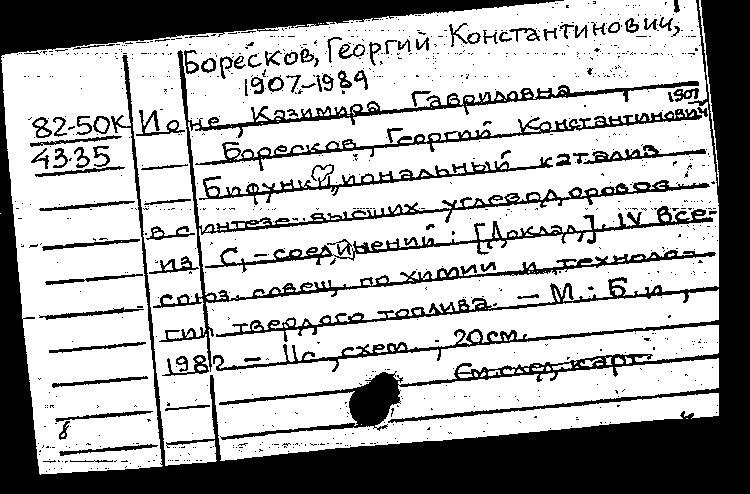 Боресков, Георгий Константинович,
1907-1984
82-50К Ионе, Казимира Гавриловна
1907
4335 Боресков, Георгий Константинович
Бифункциональный катализ
в синтезе высших углеводородов
из C₁-соединений: [Доклад]. IV Все-
союз. совещ. по химии и техноло-
гии твердого топлива. - М.: Б.и.,
1982. - 11с., схем.; 20см.
См. след. карт.
8